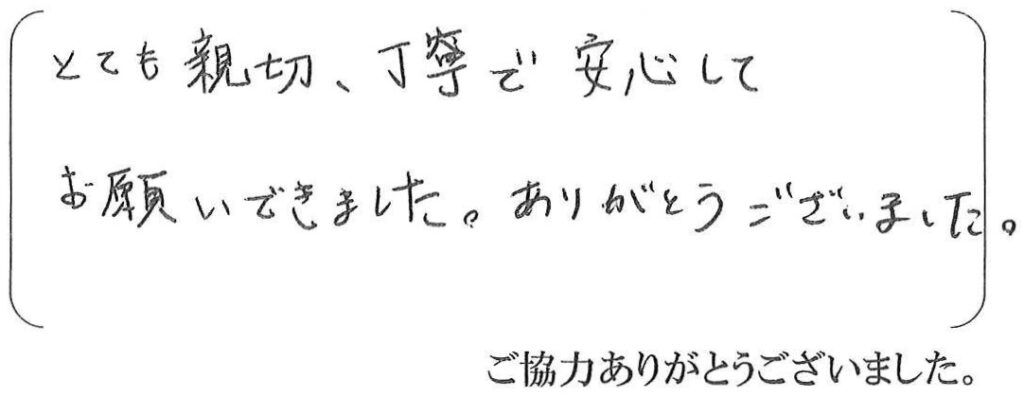 とても親切、丁寧で安心して
お願いできました。ありがとうございました。
ご協力ありがとうございました。